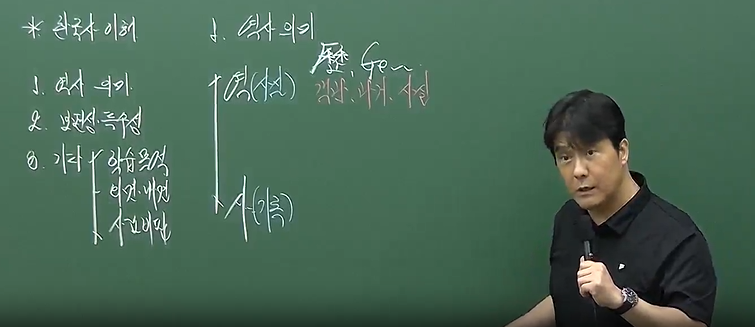 * 한국사 이해
1. 역사 의미
2. 보편성·특수성
3. 기타
학습목적
외적·내적
사료비판
1. 역사 의미
역(사실) 歷, Ge
객관, 과거, 사실
사(기록)